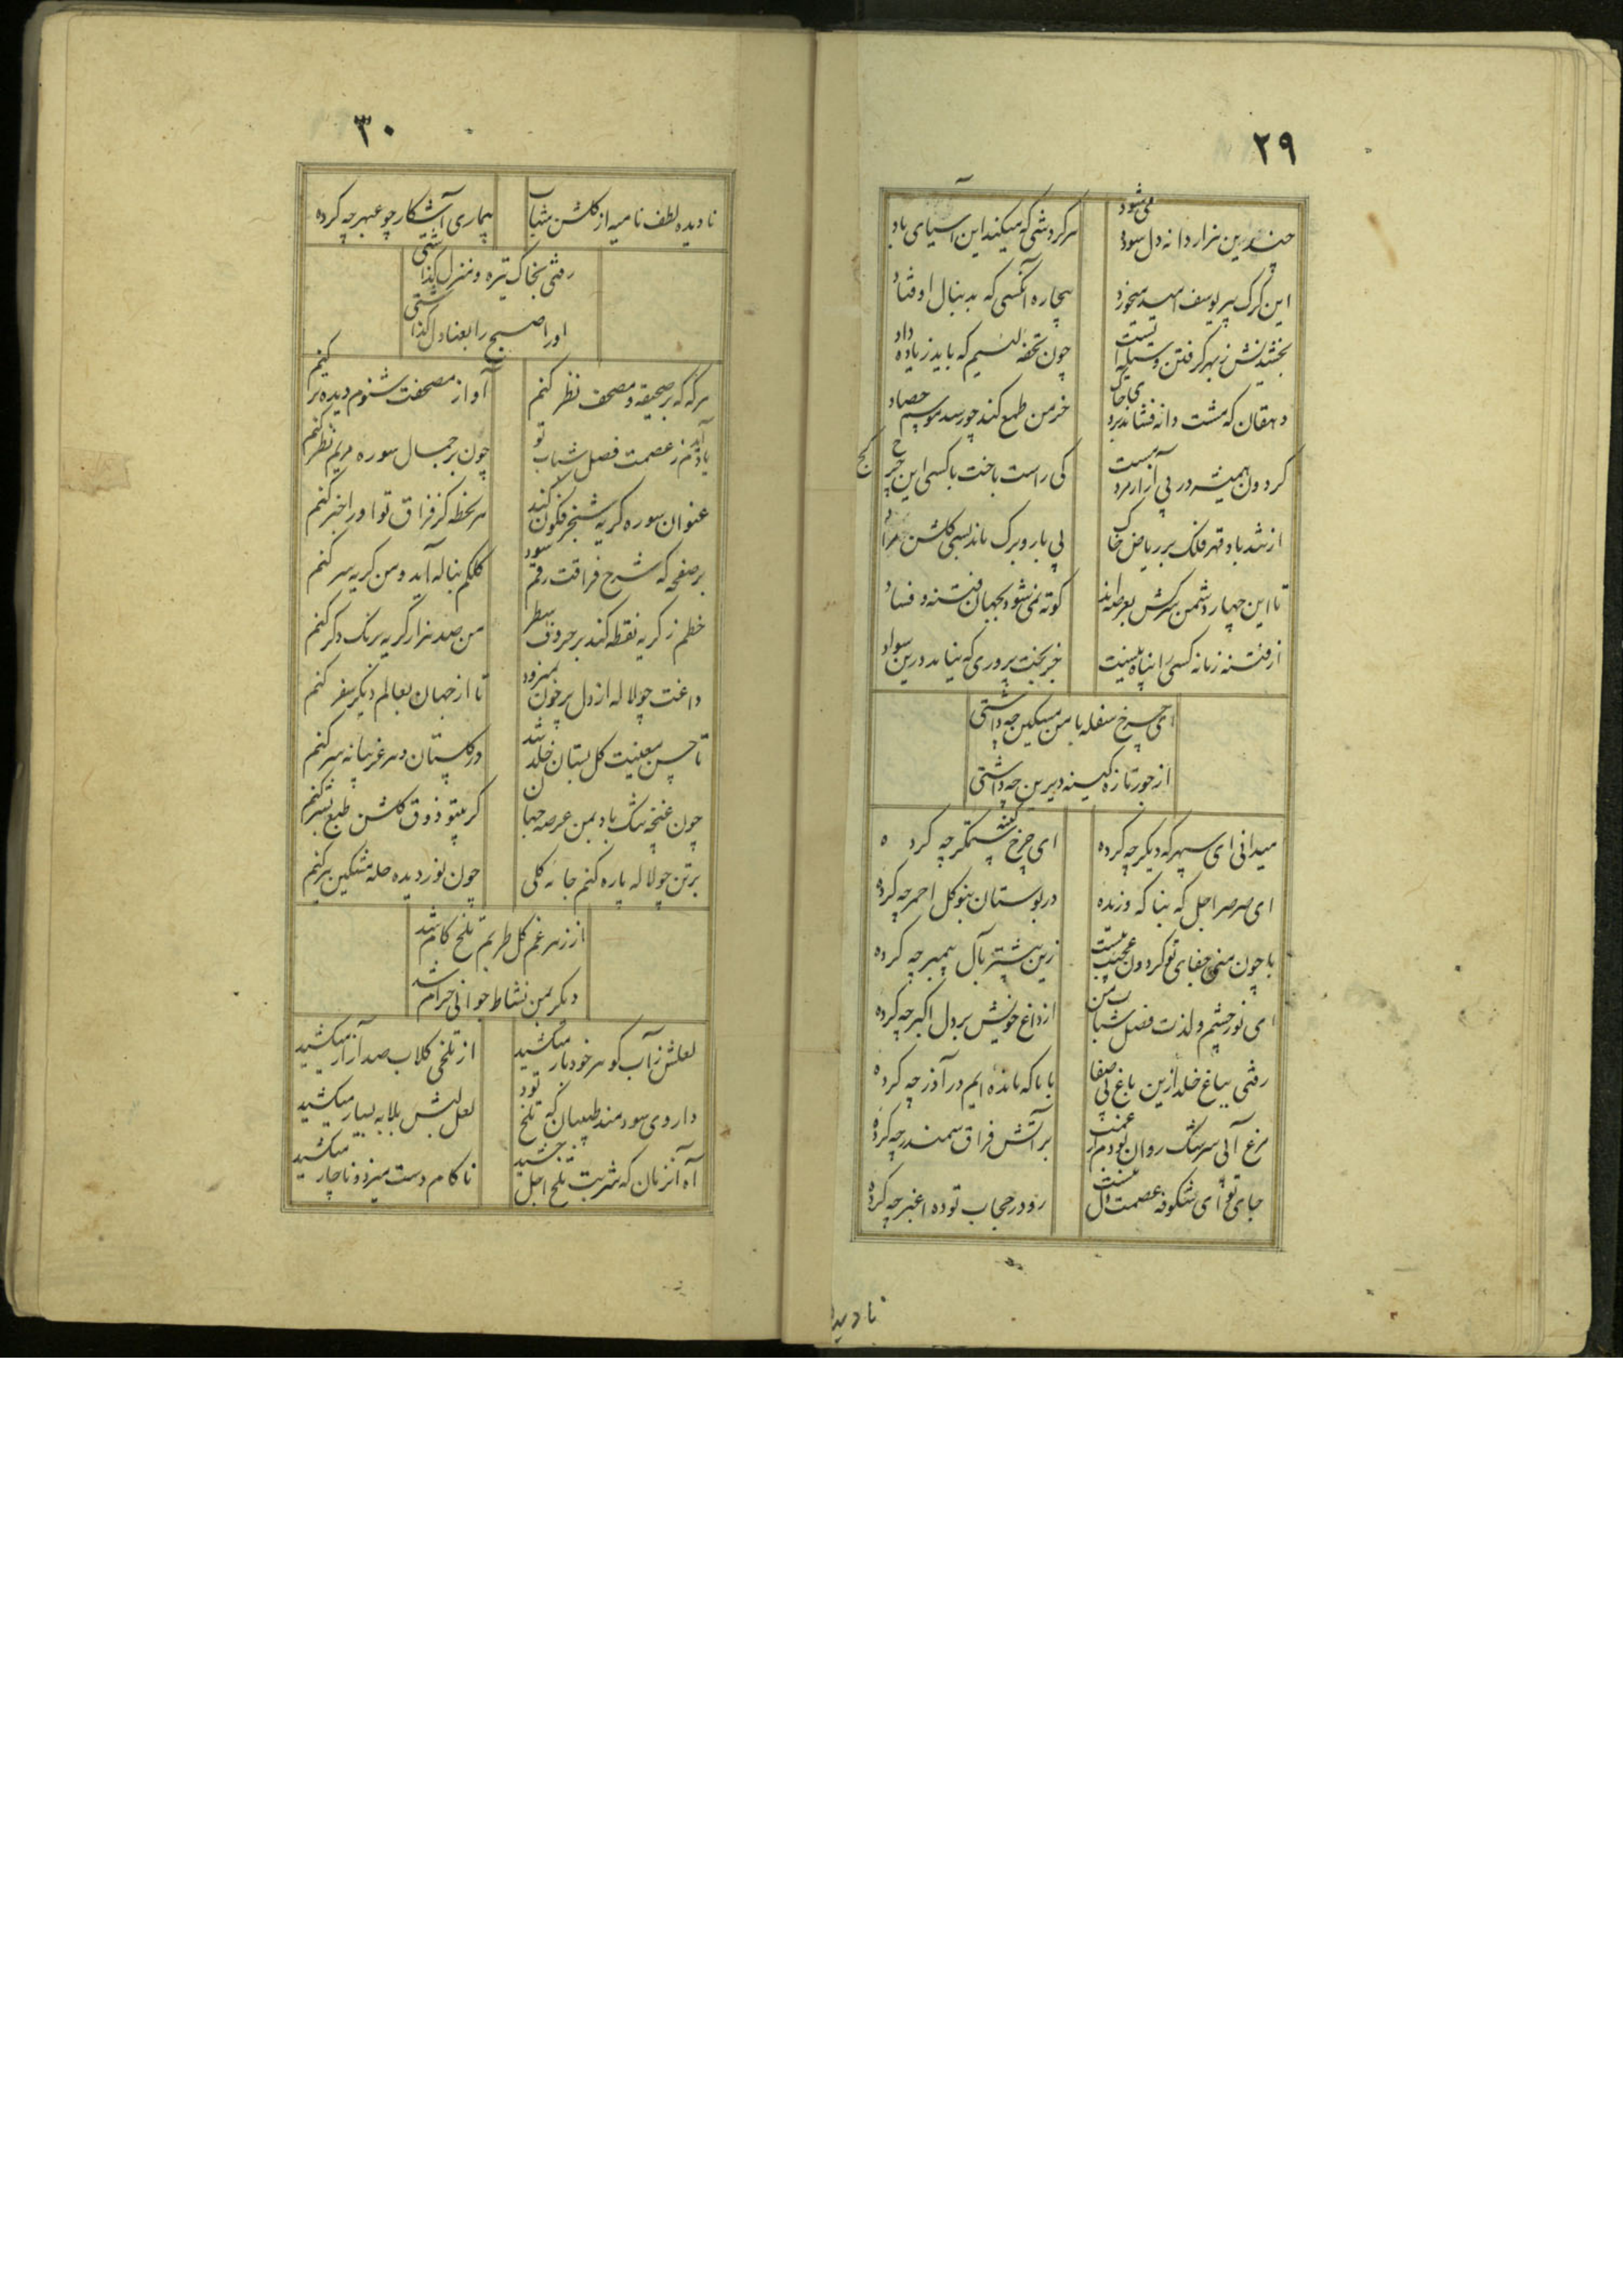 ۲۹
چندین هزار دانه دل سوده می شود
هر گردشی که میکند این آسیای باد
این گرگ پیر یوسف امید میخورد
بیچاره آنکسی که بدنبال او فتاد
بخشیدنش ز بهر گرفتن وسیله ایست
چون تحفه لئیم که باید زیاده داد
دهقان که مشت دانه فشاند بروی خاک
خرمن طمع کند چو رسد موسم حصاد
گردون همیشه در پی آزار مردمست
کی راست باخت با کسی این چرخ کج
از تندباد قهر فلک بر ریاض خاک
بی بار و برگ ماند بسی گلشن مراد
تا این چهار دشمن سرکش بعرصه اند
کوته نمی شود بجهان فتنه و فساد
از فتنه زمانه کسی را پناه نیست
جز بخت پروری که نیاید درین سواد
ای چرخ سفله با من مسکین چه داشتی
از جور تازه کینه دیرین چه داشتی
میدانی ای سپهر که دیگر چه کرده
ای چرخ کینه ستمگر چه کرده
ای صرصر اجل که بنا که وزنده
در بوستان بنو گل احمر چه کرده
با چون منی جفای تو گردون عجیب نیست
زین بیشتر بآل پیمبر چه کرده
ای نور چشم و لذت فصل شباب من
از داغ خویش بر دل اکبر چه کرده
رفتی بباغ خلد ازین باغ بی صفا
با ما که مانده ایم در آذر چه کرده
مرغ آبی سرشک روان بودم از غمت
بر آتش فراق سمندر چه کرده
جای تو ای شکوفه عصمت دل منست
رو در حجاب توده اغبر چه کرده
نادیده
۳۰
نادیده لطف نامیه از گلشن شباب
بیماری آشکار چو عبهر چه کرده
رفتی بخاک تیره و منزل گذاشتی
اوراد صبح را بعنادل گذاشتی
هر گه که بر صحیفه و مصحف نظر کنم
آواز مصحفت شنوم دیده تر کنم
یاد آیدم ز عصمت فصل شباب تو
چون بر جمال سوره مریم نظر کنم
عنوان سوره گریه شنجرفگون کند
هر لحظه کز فراق تو او را خبر کنم
بر صفحه که شرح فراقت رقم شود
کلکم بناله آید و من گریه سر کنم
خطم ز گریه نقطه کند بر حروف سطر
من صد هزار گریه برنگ دگر کنم
داغت چو لاله از دل پر خون نمیرود
تا از جهان بعالم دیگر سفر کنم
تا حسن معنیت گل بستان خلد شد
در گلستان دهر غریبانه سر کنم
چون غنچه تنگ باد بمن عرصه جهان
گر بیتو ذوق گلشن طبع بشر کنم
بر تن چو لاله پاره کنم جامه گلی
چون نور دیده حله مشکین ببر کنم
از زهر غم گل طربم تلخ کام شد
دیگر بمن نشاط جوانی حرام شد
لعلش ز آب گوهر خود بار میکشید
از تلخی گلاب صد آزار میکشید
داروی سودمند طبیبان که تلخ بود
لعل لبش بلابه بسیار میکشید
آه آنزمان که شربت تلخ اجل چشید
ناکام دست میزد و ناچار میکشید